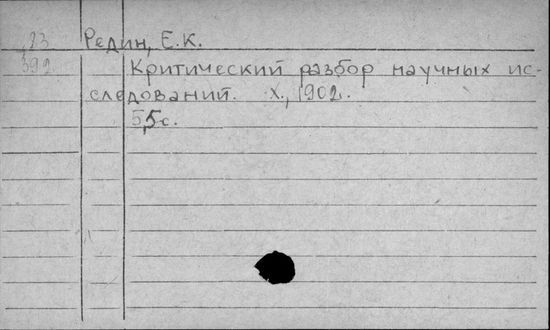 Редин, Е.К.
392
Критический разбор научных ис-
следований. Х., 1902.
55с.